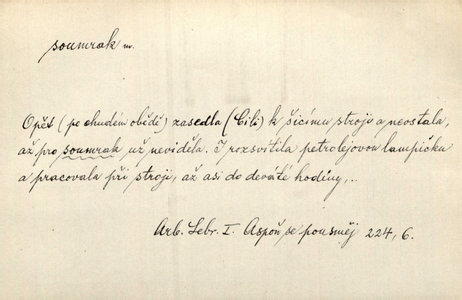 soumrak m.
Opět (po chudém obědě) zasedla (Cili) k šicímu stroji a neostala,
až pro soumrak už neviděla. I rozsvítila petrolejovou lampičku
a pracovala při stroji, až asi do deváté hodiny,..
Arb. Sebr. I. Aspoň se pousměj 224, 6.